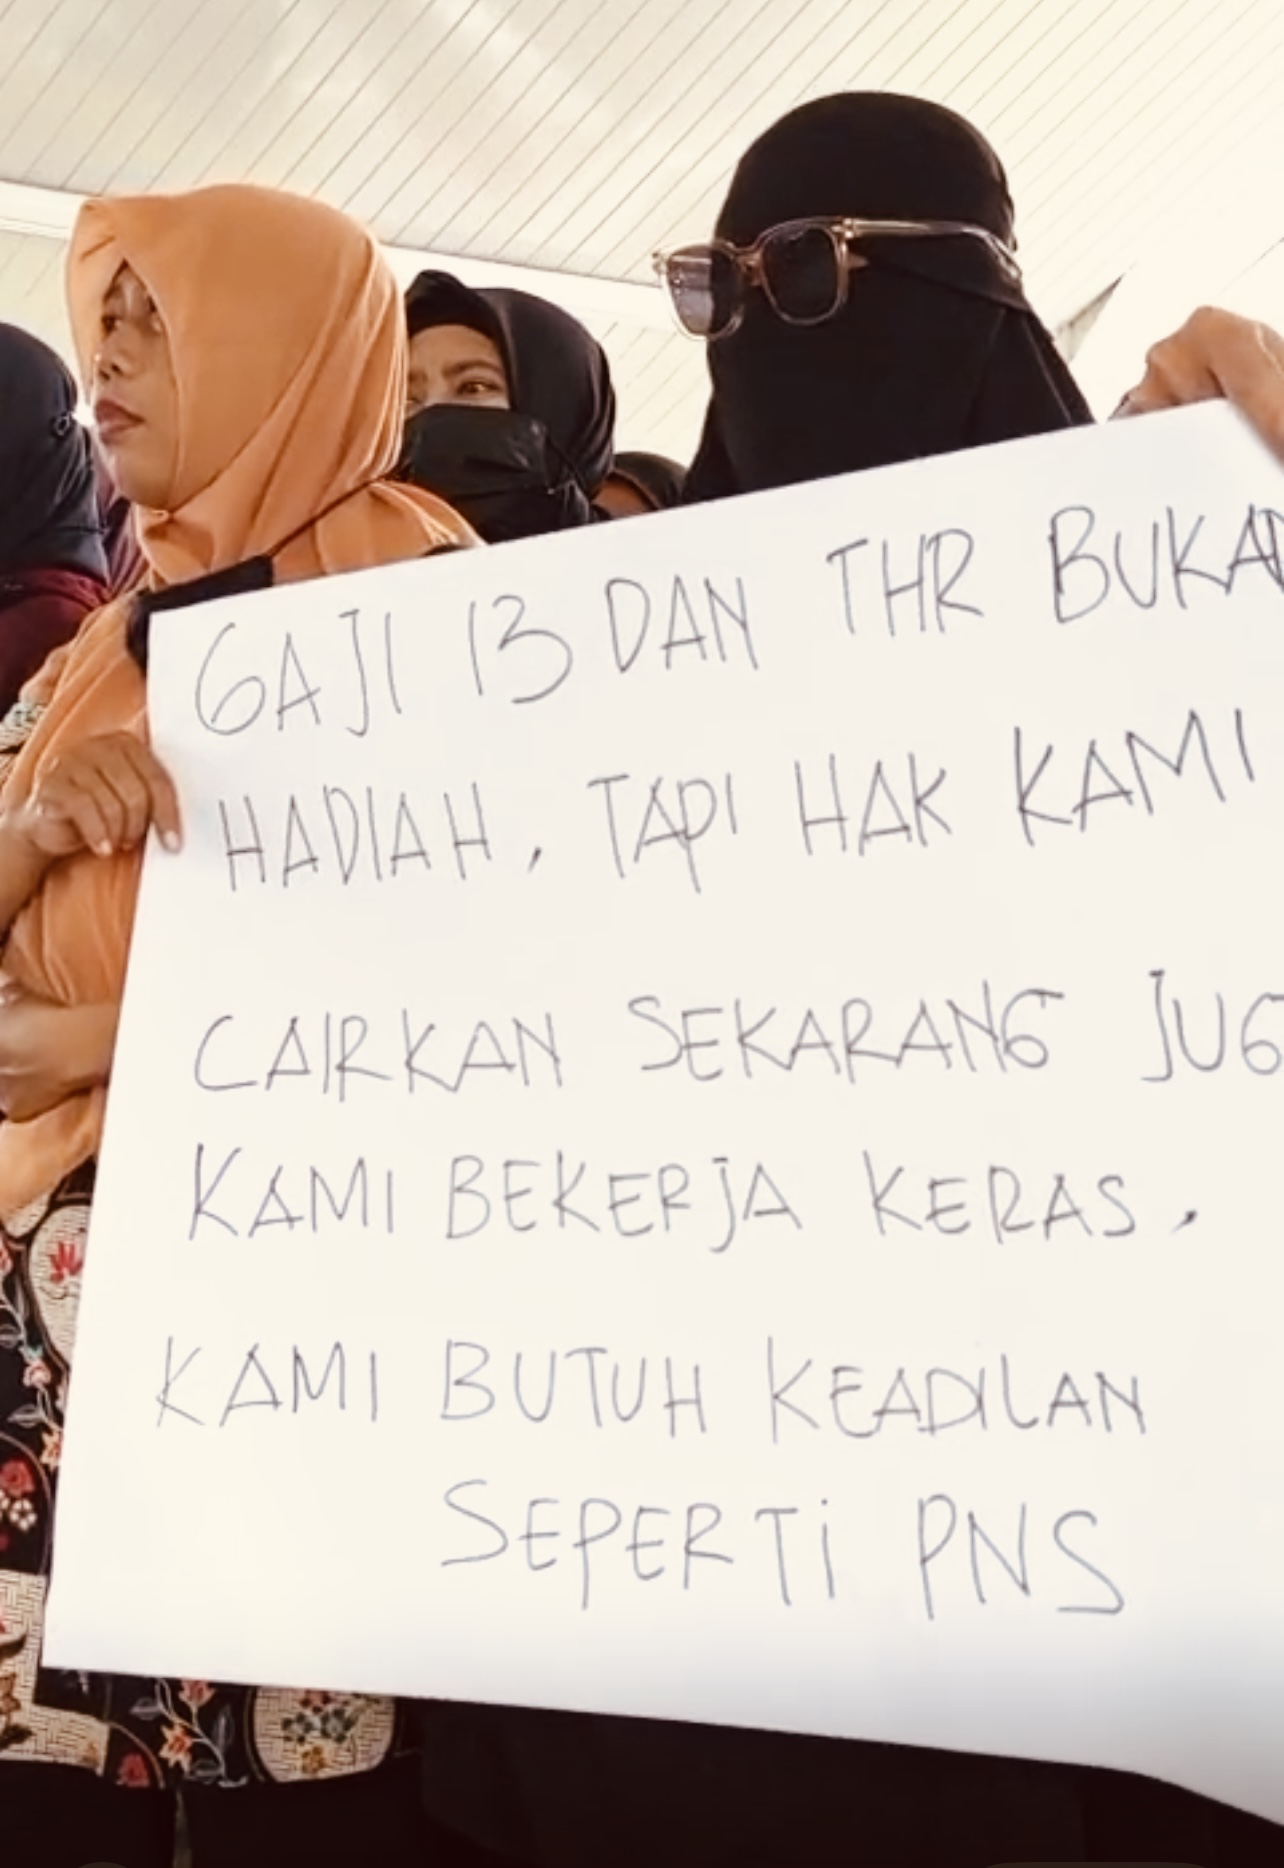 GAJI 13 DAN THR BUKAN
HADIAH, TAPI HAK KAMI
CAIRKAN SEKARANG JUG
KAMI BEKERJA KERAS.
KAMI BUTUH KEADILAN
SEPERTi PNS